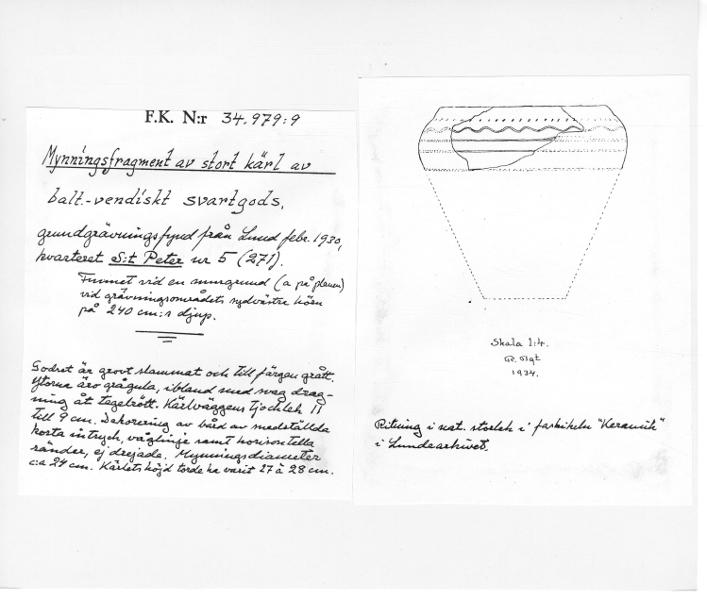 F.K. N:r 34.979:9
Mynningsfragment av stort kärl av
balt.-vendiskt svartgods,
grundgrävningsfynd från Lund febr. 1930,
kvarteret S:t Peter nr 5 (271).
Funnet vid en murgrund (a på planen)
vid grävningsområdets sydvästra hörn
på 240 cm:s djup.
Godset är grovt slammat och till färgen grått.
Ytorna äro grågula, ibland med svag drag-
ning åt tegelrött. Kärlväggens tjocklek 11
till 9 cm. Dekorering av bård av snedställda
korta intryck, våglinje samt horisontella
ränder, ej drejade. Mynningsdiameter
c:a 24 cm. Kärlets höjd torde ha varit 27 à 28 cm.
Skala 1:4.
1934.
Ritning i nat. storlek i faskikeln "Keramik"
i Lundaarkivet.